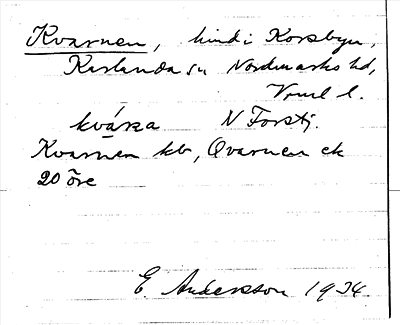 Kvarnen, hmd i Korsbyn,
Karlanda sn Nordmarks hd,
Vrml l.
kvárna N Forstj.
Kvarnen kb, Qvarnen ek
20 öre
E. Andersson 1934